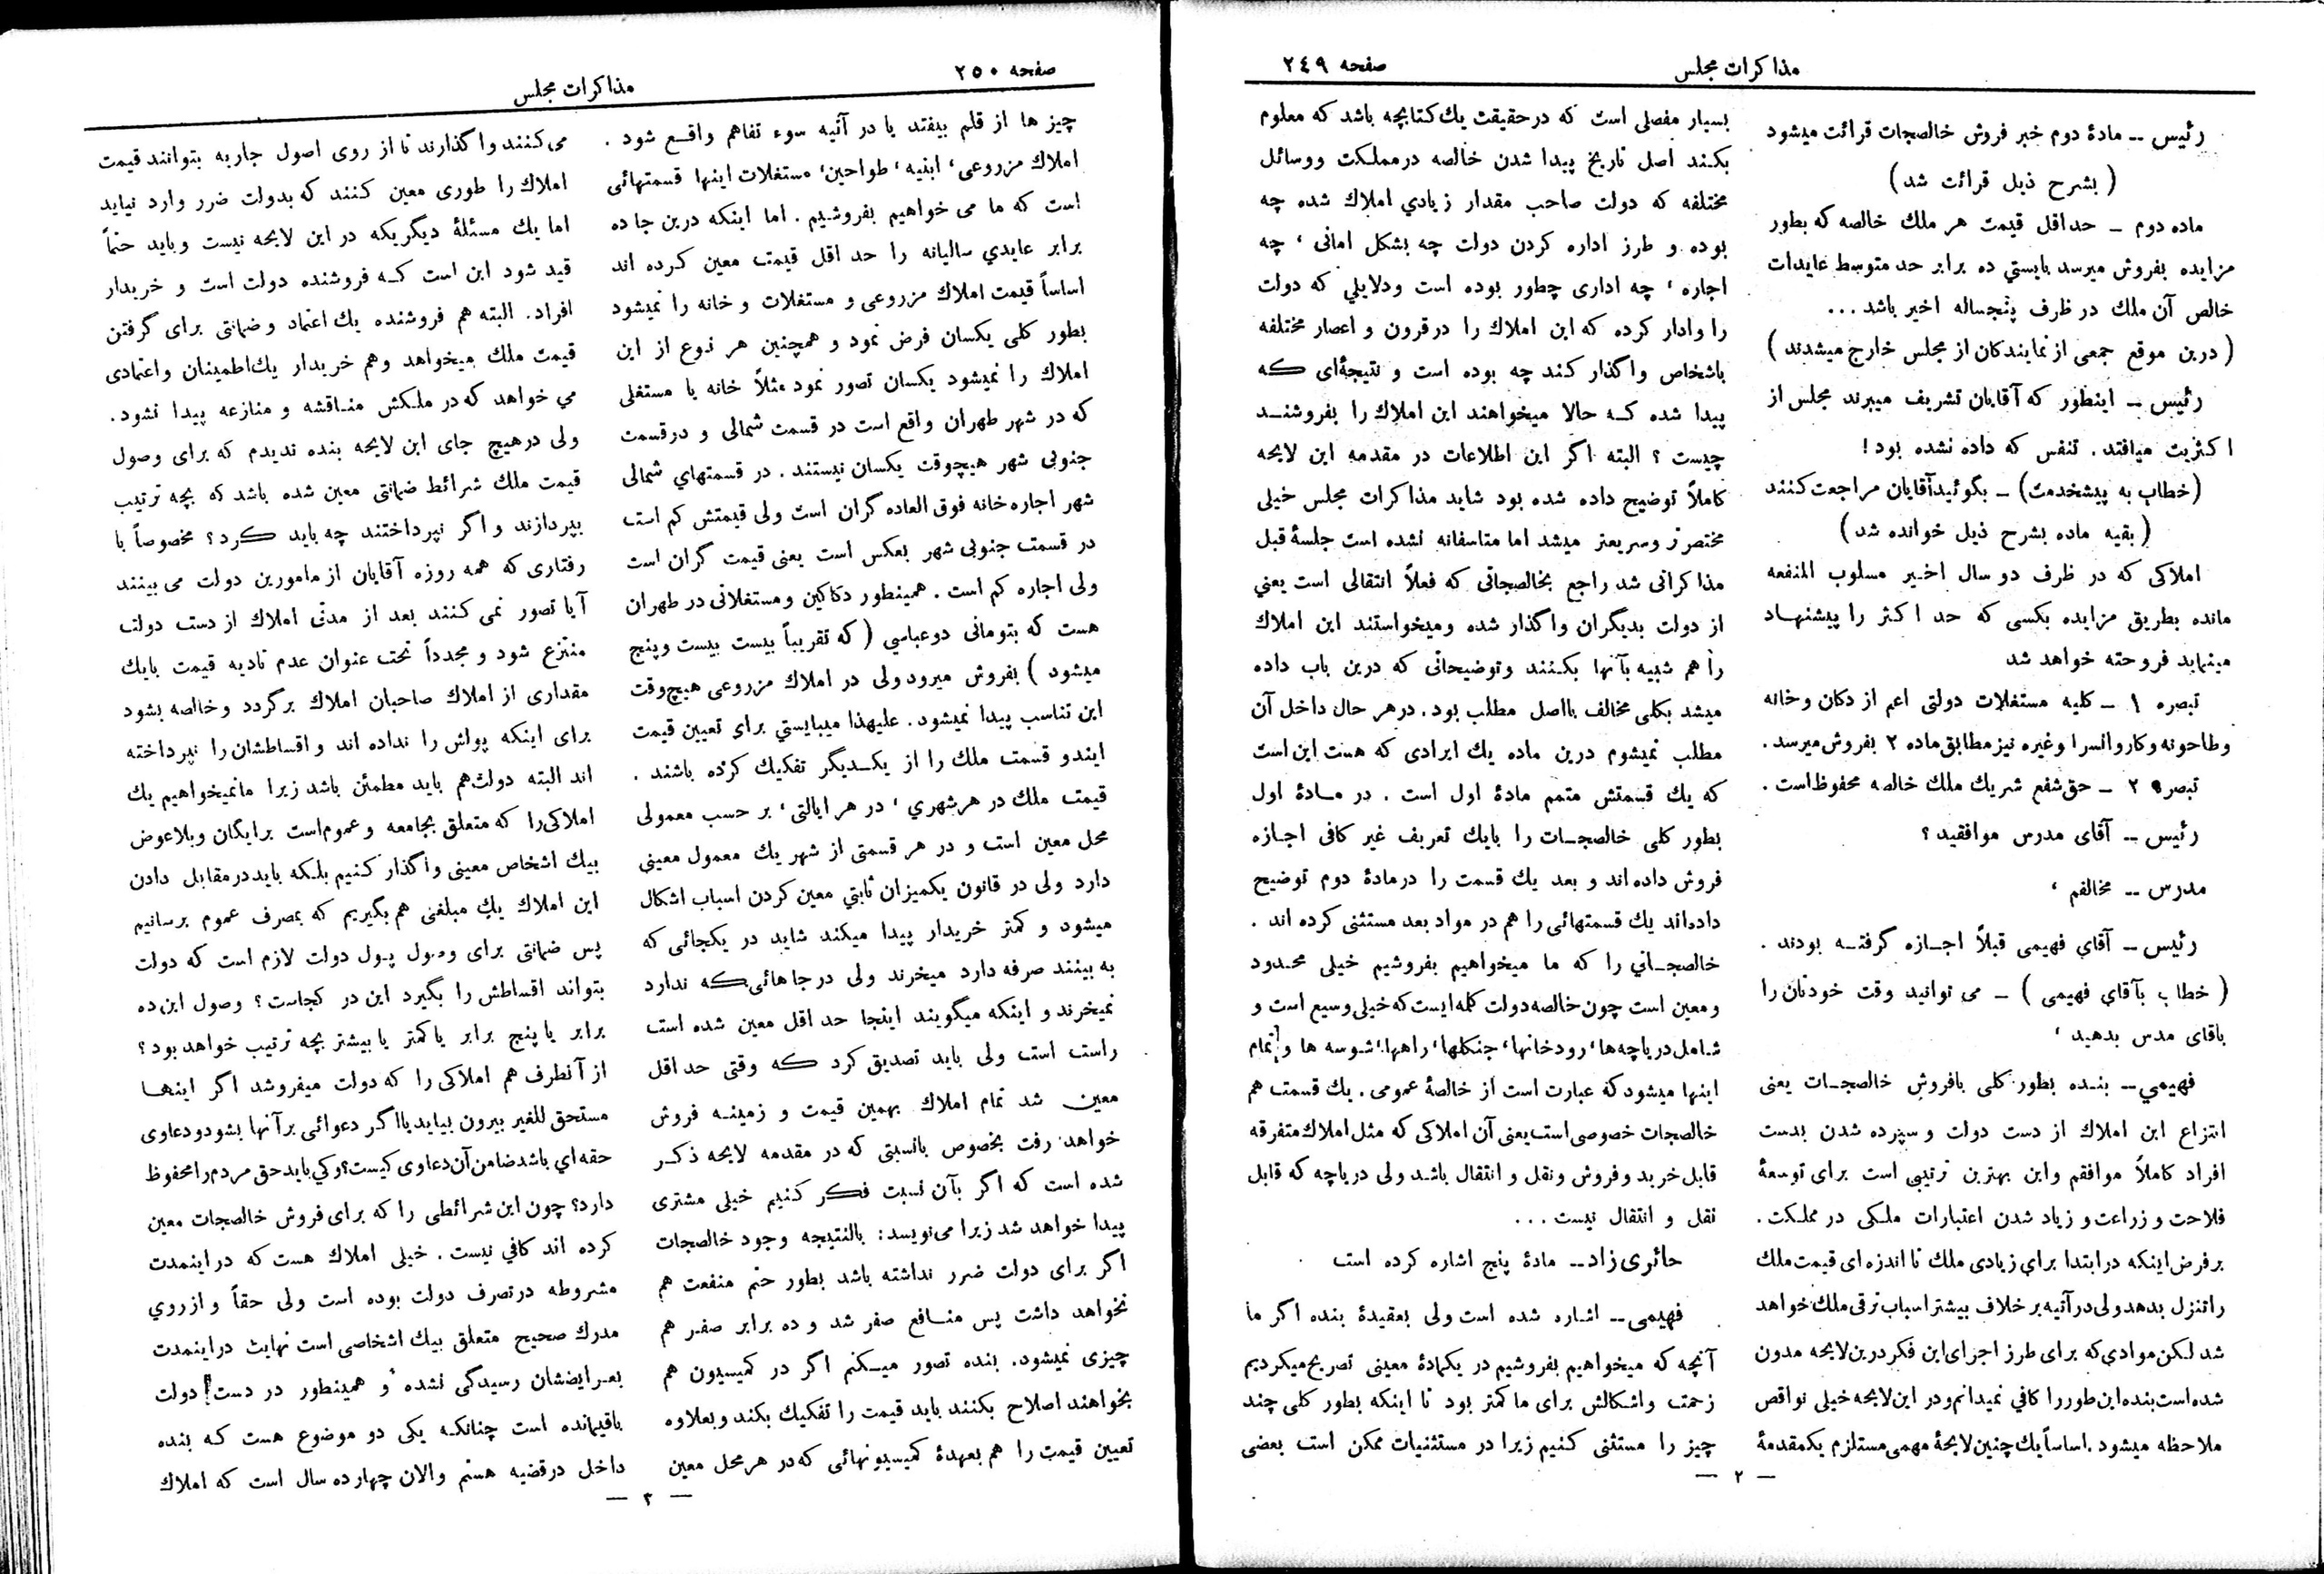 مذاکرات مجلس
صفحه ۲٤۹
رئیس -- مادهٔ دوم خبر فروش خالصجات قرائت میشود
( بشرح ذیل قرائت شد )
ماده دوم - حداقل قیمت هر ملك خالصه که بطور
مزایده بفروش میرسد بایستي ده برابر حد متوسط عایدات
خالص آن ملك در ظرف پنجساله اخیر باشد ...
( درین موقع جمعی از نمایندکان از مجلس خارج میشدند )
رئیس -- اینطور که آقایان تشریف میبرند مجلس از
اکثریت میافتد . تنفس که داده نشده بود !
(خطاب به پیشخدمت) - بگوئید آقایان مراجعت کنند
( بقیه ماده بشرح ذیل خوانده شد )
املاکی که در ظرف دو سال اخیر مسلوب المنفعه
مانده بطریق مزایده بکسی که حد اکثر را پیشنهاد
مینماید فروخته خواهد شد
تبصره ۱ - کلیه مستغلات دولتی اعم از دکان و خانه
و طاحونه و کاروانسرا وغیره نیز مطابق ماده ۲ بفروش میرسد .
تبصره ۲ - حق شفع شریك ملك خالصه محفوظ است .
رئیس -- آقای مدرس موافقید ؟
مدرس -- مخالفم ،
رئیس -- آقاي فهیمی قبلاً اجازه گرفته بودند .
( خطاب بآقاي فهیمی ) - می توانید وقت خودتان را
باقای مدس بدهید ،
فهیمي -- بنده بطور کلی بافروش خالصجات یعنی
انتزاع این املاك از دست دولت و سپرده شدن بدست
افراد کاملاً موافقم واین بهترین ترتیبی است برای توسعهٔ
فلاحت و زراعت و زیاد شدن اعتبارات ملکی در مملکت .
بر فرض اینکه در ابتدا براي زیادی ملك تا اندزه ای قیمت ملك
را تنزل بدهد ولی در آتیه بر خلاف بیشتر اسباب ترقی ملك خواهد
شد لکن موادي که برای طرز اجرای این فکر درین لایحه مدون
شده است بنده این طور را کافي نمیدانم و در این لایحه خیلی نواقص
ملاحظه میشود . اساساً یك چنین لایحهٔ مهمی مستلزم یکمقدمهٔ
بسیار مفصلی است که در حقیقت یك کتابچه باشد که معلوم
بکند اصل تاریخ پیدا شدن خالصه در مملکت ووسائل
مختلفه که دولت صاحب مقدار زیادي املاك شده چه
بوده و طرز اداره کردن دولت چه بشکل امانی ، چه
اجاره ، چه اداری چطور بوده است ودلایلي که دولت
را وادار کرده که این املاك را در قرون و اعصار مختلفه
باشخاص واگذار کند چه بوده است و نتیجهٔ ای که
پیدا شده که حالا میخواهند این املاك را بفروشند
چیست ؟ البته اگر این اطلاعات در مقدمه این لایحه
کاملاً توضیح داده شده بود شاید مذاکرات مجلس خیلی
مختصر تر و سریعتر میشد اما متاسفانه نشده است جلسهٔ قبل
مذاکراتی شد راجع بخالصجاتی که فعلاً انتقالی است یعني
از دولت بدیگران واگذار شده ومیخواستند این املاك
را هم شبیه بآنها بکنند وتوضیحاتی که درین باب داده
میشد بکلی مخالف بااصل مطلب بود . در هر حال داخل آن
مطلب نمیشوم درین ماده یك ایرادی که هست این است
که یك قسمتش متمم مادهٔ اول است . در مادهٔ اول
بطور کلی خالصجات را بایك تعریف غیر کافی اجازه
فروش داده اند و بعد یك قسمت را در مادهٔ دوم توضیح
داده اند یك قسمتهائی را هم در مواد بعد مستثنی کرده اند .
خالصجاتي را که ما میخواهیم بفروشیم خیلی محدود
و معین است چون خالصه دولت کلمه ایست که خیلی وسیع است و
شامل دریاچه ها ، رودخانها ، جنکلها ، راهها ، شوسه ها و تمام
اینها میشود که عبارت است از خالصهٔ عمومی . یك قسمت هم
خالصجات خصوصی است یعنی آن املاکی که مثل املاك متفرقه
قابل خرید و فروش و نقل و انتقال باشد ولی دریاچه که قابل
نقل و انتقال نیست ...
حائری زاد -- مادهٔ پنج اشاره کرده است
فهیمی -- اشاره شده است ولی بعقیدهٔ بنده اگر ما
آنچه که میخواهیم بفروشیم در یکمادهٔ معینی تصریح میکردیم
زحمت واشکالش برای ما کمتر بود تا اینکه بطور کلی چند
چیز را مستثنی کنیم زیرا در مستثنیات ممکن است بعضی
— ۲ —
صفحه ۲۵۰
مذاکرات مجلس
چیز ها از قلم بیفتد یا در آتیه سوء تفاهم واقع شود .
املاك مزروعی ، ابنیه ، طواحین ، مستغلات اینها قسمتهائی
است که ما می خواهیم بفروشیم . اما اینکه درین جا ده
برابر عایدي سالیانه را حد اقل قیمت معین کرده اند
اساساً قیمت املاك مزروعی و مستغلات و خانه را نمیشود
بطور کلی یکسان فرض نمود و همچنین هر نوع از این
املاك را نمیشود یکسان تصور نمود مثلاً خانه یا مستغلی
که در شهر طهران واقع است در قسمت شمالی و در قسمت
جنوبی شهر هیچوقت یکسان نیستند . در قسمتهاي شمالی
شهر اجاره خانه فوق العاده گران است ولی قیمتش کم است
در قسمت جنوبی شهر بعکس است یعنی قیمت گران است
ولی اجاره کم است . همینطور دکاکین و مستغلاتی در طهران
هست که بتومانی دوعباسي ( که تقریباً بیست بیست وپنج
میشود ) بفروش میرود ولی در املاك مزروعی هیچوقت
این تناسب پیدا نمیشود . علیهذا میبایستي برای تعیین قیمت
ایندو قسمت ملك را از یکدیگر تفکیك کرده باشند .
قیمت ملك در هر شهري ، در هر ایالتی ، بر حسب معمولی
محل معین است و در هر قسمتی از شهر یك معمول معیني
دارد ولی در قانون یکمیزان ثابتي معین کردن اسباب اشکال
میشود و کمتر خریدار پیدا میکند شاید در یکجائی که
به بینند صرفه دارد میخرند ولی در جاهائیکه ندارد
نمیخرند و اینکه میگویند اینجا حد اقل معین شده است
راست است ولی باید تصدیق کرد که وقتی حد اقل
معین شد تمام املاك بهمین قیمت و زمینه فروش
خواهد رفت بخصوص بانسبتی که در مقدمه لایحه ذکر
شده است که اگر بآن نسبت فکر کنیم خیلی مشتری
پیدا خواهد شد زیرا می نویسد : بالنتیجه وجود خالصجات
اگر برای دولت ضرر نداشته باشد بطور حتم منفعت هم
نخواهد داشت پس منافع صفر شد و ده برابر صفر هم
چیزی نمیشود . بنده تصور میکنم اگر در کمیسیون هم
بخواهند اصلاح بکنند باید قیمت را تفکیك بکند وبعلاوه
تعیین قیمت را هم بعهدهٔ کمیسیونهائی که در هر محل معین
می کنند واگذارند تا از روی اصول جاریه بتوانند قیمت
املاك را طوری معین کنند که بدولت ضرر وارد نیاید
اما یك مسئلهٔ دیگریکه در این لایحه نیست و باید حتماً
قید شود این است که فروشنده دولت است و خریدار
افراد . البته هم فروشنده یك اعتماد و ضمانتی برای گرفتن
قیمت ملك میخواهد وهم خریدار یك اطمینان و اعتمادی
مي خواهد که در ملکش مناقشه و منازعه پیدا نشود .
ولی در هیچ جای این لایحه بنده ندیدم که برای وصول
قیمت ملك شرائط ضمانتی معین شده باشد که بچه ترتیب
بپردازند و اگر نپرداختند چه باید کرد ؟ مخصوصاً با
رفتاری که همه روزه آقایان از مامورین دولت می بینند
آیا تصور نمی کنند بعد از مدتی املاك از دست دولت
منتزع شود و مجدداً تحت عنوان عدم تادیه قیمت بایك
مقداری از املاك صاحبان املاك برگردد و خالصه بشود
برای اینکه پولش را نداده اند و اقساطشان را نپرداخته
اند البته دولت هم باید مطمئن باشد زیرا مانمیخواهیم یك
املاکی را که متعلق بجامعه و عموم است برایگان وبلاعوض
بیك اشخاص معینی واگذار کنیم بلکه باید در مقابل دادن
این املاك یك مبلغی هم بگیریم که بمصرف عموم برسانیم
پس ضمانتی برای وصول پول دولت لازم است که دولت
بتواند اقساطش را بگیرد این در کجاست ؟ وصول این ده
برابر یا پنج برابر یا کمتر یا بیشتر بچه ترتیب خواهد بود ؟
از آنطرف هم املاکی را که دولت میفروشد اگر اینها
مستحق للغیر بیرون بیاید یا اگر دعوائی بر آنها بشود و دعاوی
حقه اي باشد ضامن آن دعاوی کیست ؟ وکي باید حق مردم را محفوظ
دارد ؟ چون این شرائطی را که برای فروش خالصجات معین
کرده اند کافي نیست . خیلی املاك هست که در اینمدت
مشروطه در تصرف دولت بوده است ولی حقاً و از روي
مدرك صحیح متعلق بیك اشخاصی است نهایت در اینمدت
بعرایضشان رسیدگی نشده و همینطور در دست دولت
باقیمانده است چنانکه یکی دو موضوع هست که بنده
داخل در قضیه هستم والان چهارده سال است که املاك
— ۳ —